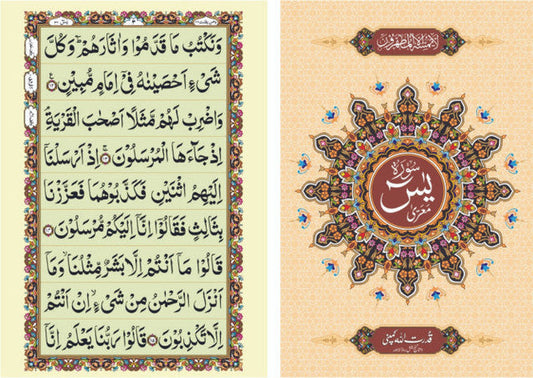 وَنَكْتُبُ مَا قَدَّمُوْا وَاٰثَارَهُمْ ؕ وَكُلَّ
شَیْءٍ اَحْصَيْنٰهُ فِیْۤ اِمَامٍ مُّبِيْنٍ ۝۱۲
وَاضْرِبْ لَهُمْ مَّثَلًا اَصْحٰبَ الْقَرْيَةِ ۘ
اِذْ جَآءَهَا الْمُرْسَلُوْنَ ۝۱۳ اِذْ اَرْسَلْنَاۤ
اِلَيْهِمُ اثْنَيْنِ فَكَذَّبُوْهُمَا فَعَزَّزْنَا
بِثَالِثٍ فَقَالُوْۤا اِنَّاۤ اِلَيْكُمْ مُّرْسَلُوْنَ ۝۱۴
قَالُوْا مَاۤ اَنْتُمْ اِلَّا بَشَرٌ مِّثْلُنَا ۙ وَمَاۤ
اَنْزَلَ الرَّحْمٰنُ مِنْ شَیْءٍ ۙ اِنْ اَنْتُمْ
اِلَّا تَكْذِبُوْنَ ۝۱۵ قَالُوْا رَبُّنَا يَعْلَمُ اِنَّاۤ
لا یمسہ الا المطہرون
سورۃ
یٰسٓ
معریٰ
قدرت اللہ کمپنی